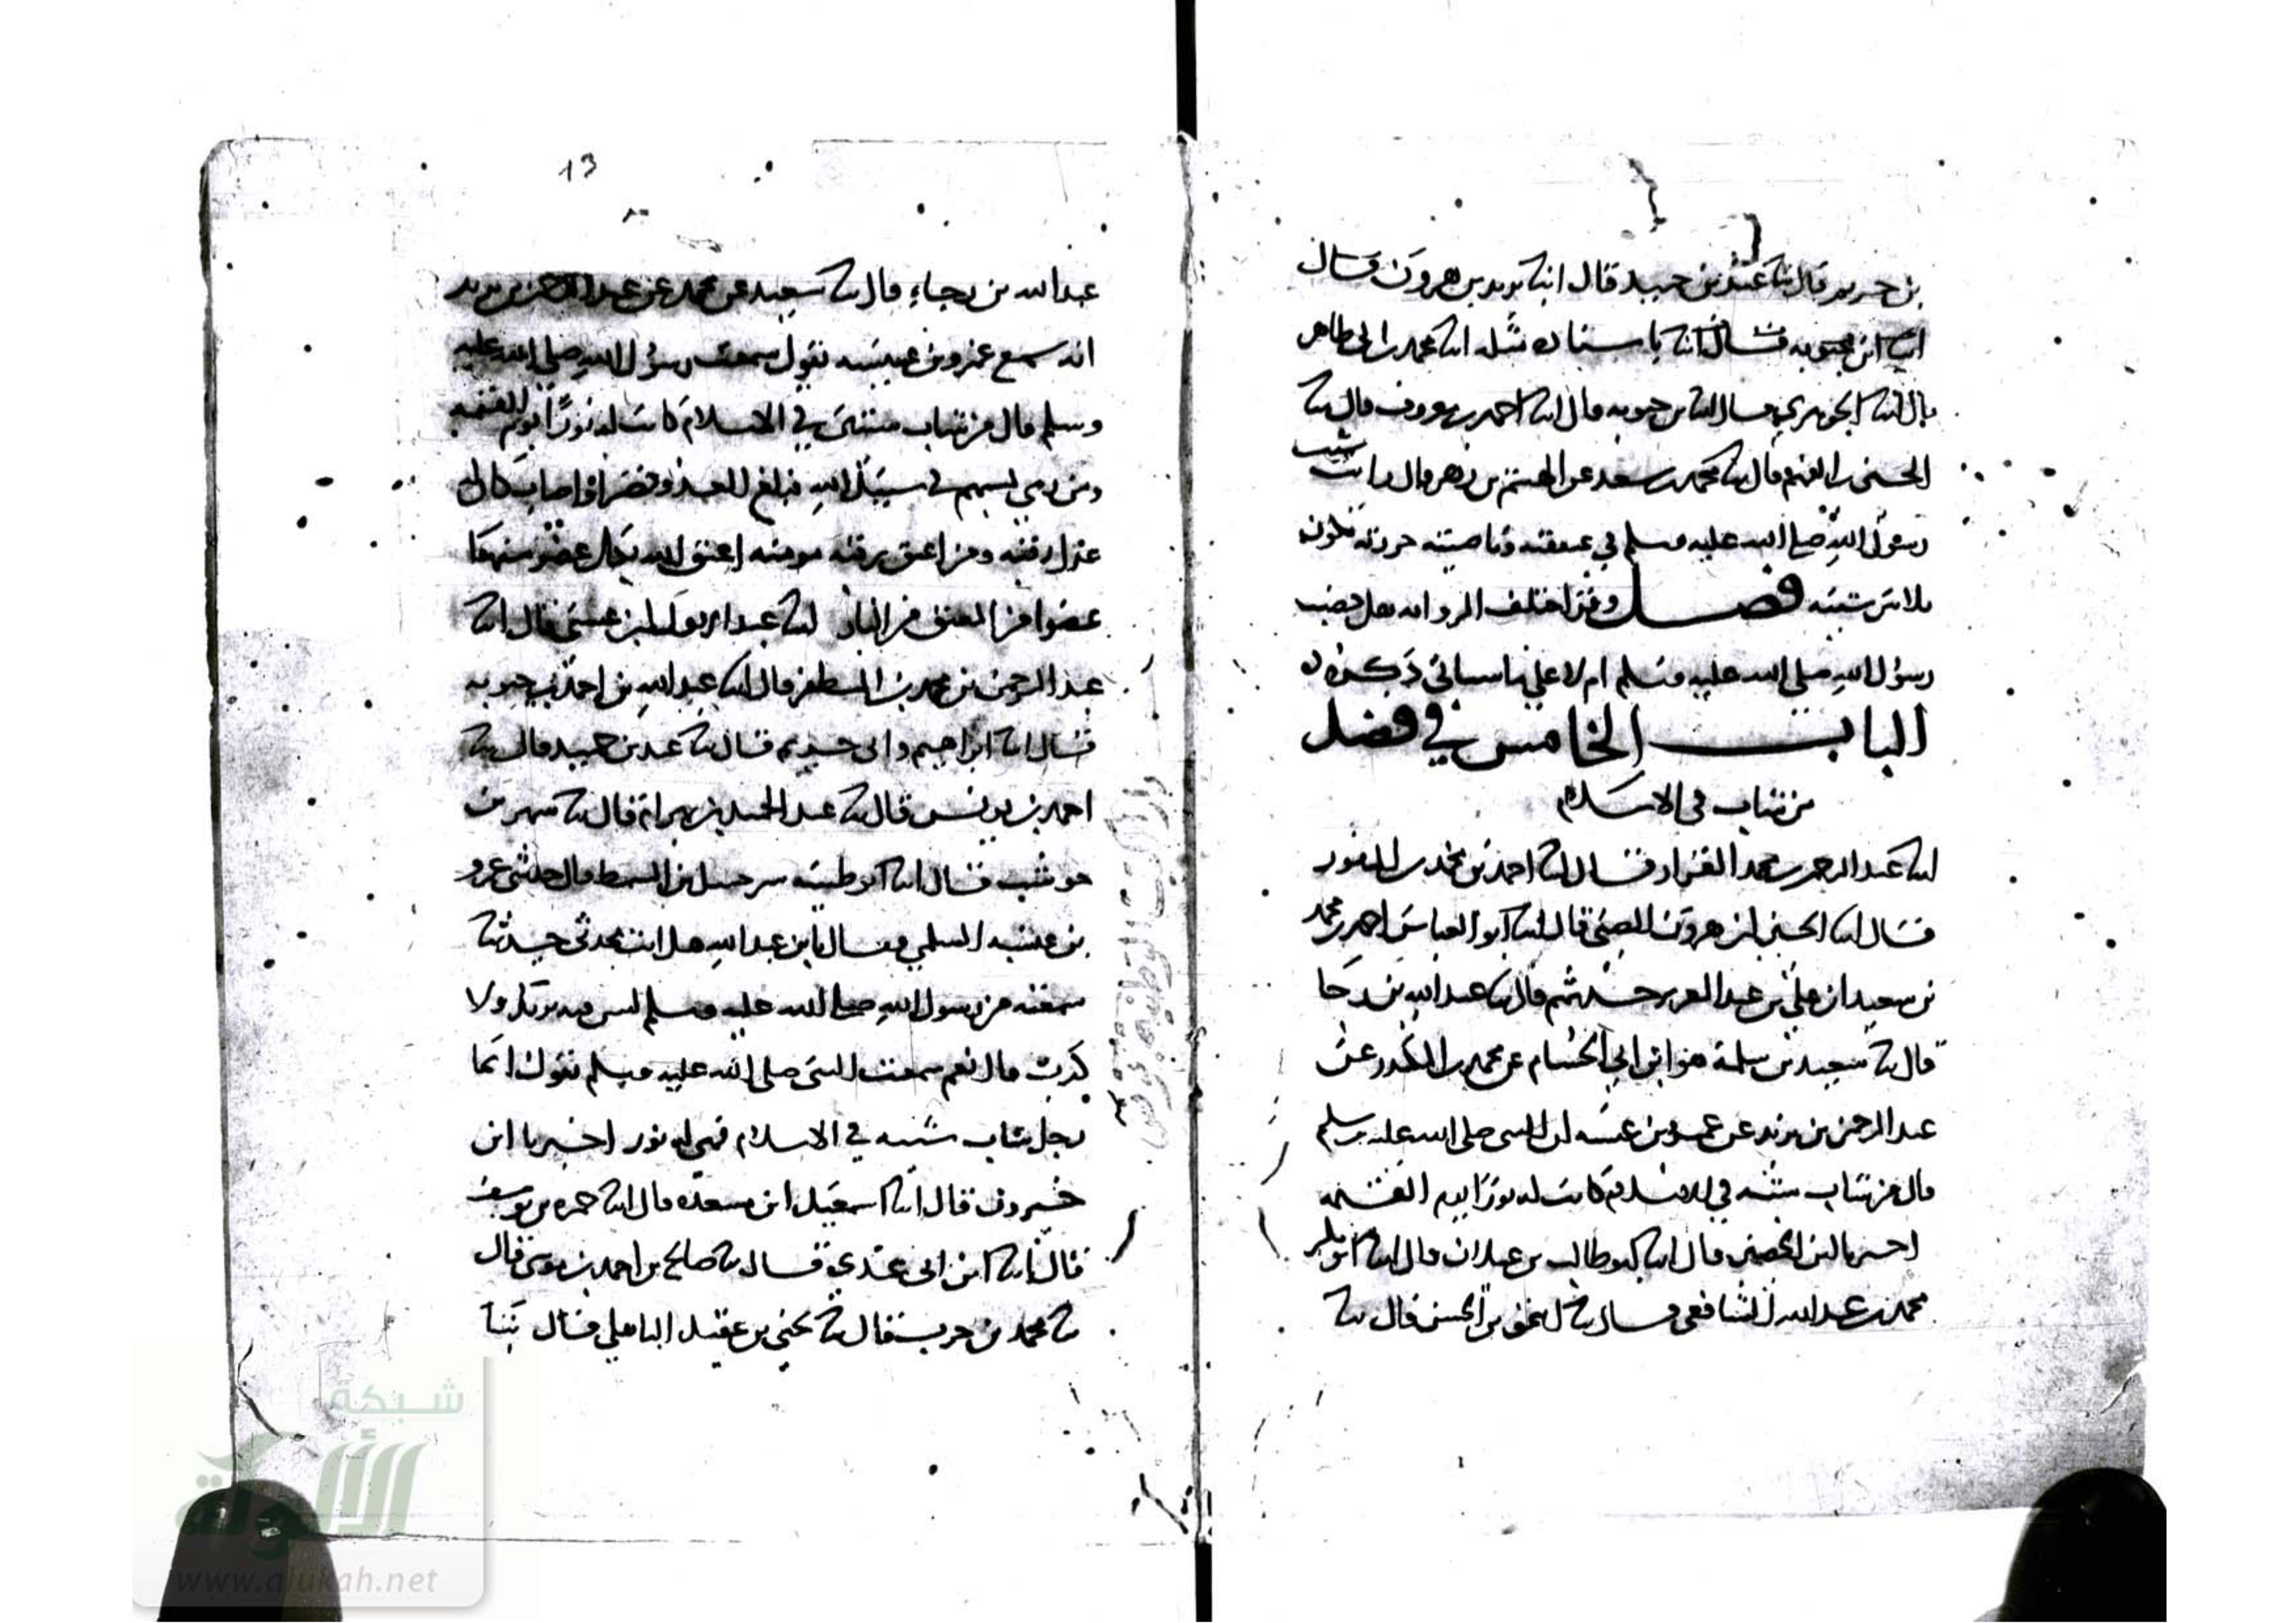 قال انبا يزيد بن هرون قال
انبا محمد بن ابي طاهر
قال انبا الجوهري قال انبا بن حيويه قال انبا احمد بن معروف قال ثنا
الحسين بن الفهم قال ثنا محمد بن سعد عن الهيثم بن دهر قال رايت شيب
رسول الله صلى الله عليه وسلم في عنفقته وناصيته حزرته يكون
ثلاثين شيبه فصل وقد اختلف الرواه هل خضب
رسول الله صلى الله عليه وسلم ام لا على ما سياتي ذكره
الباب الخامس في فضل
من شاب في الاسلام
انبا عبد الرحمن بن محمد القزاز قال انبا احمد بن
قال انبا الحسين بن هرون الضبي قال انبا ابو العباس احمد بن محمد
بن سعيد ان علي بن عبد العزيز حدثهم قال ثنا عبد الله بن رجا
قال ثنا سعيد بن سلمة هو ابن ابي الحسام عن محمد بن المنكدر عن
عبد الرحمن بن يزيد عن عمرو بن عبسه ان النبي صلى الله عليه وسلم
قال من شاب شيبه في الاسلام كانت له نورا يوم القيمه
اخبرنا ابن الحصين قال انبا ابو طالب بن غيلان قال انبا ابو بكر
محمد بن عبد الله الشافعي قال ثنا اسحق بن الحسن قال ثنا
13
عبد الله بن رجاء قال ثنا سعيد عن محمد عن عبد الرحمن بن يزيد
انه سمع عمرو بن عبسه يقول سمعت رسول الله صلى الله عليه
وسلم قال من شاب شيبه في الاسلام كانت له نورا يوم القيمه
ومن رمى بسهم في سبيل الله فبلغ العدو فقصر او اصاب كان له
عدل رقبه ومن اعتق رقبه مومنه اعتق الله بكل عضو منها
عضوا من المعتق من النار انبا عبد الاول بن عيسى قال انبا
عبد الرحمن بن محمد بن المظفر قال انبا عبد الله بن احمد بن حيويه
قال انبا ابراهيم قال ثنا عبد بن حميد قال ثنا
احمد بن يونس قال ثنا عبد الحميد بن بهرام قال ثنا شهر بن
حوشب قال انبا ابو طيبه شرحبيل بن السمط قال
بن عبسه السلمي فقال يا بن عبسه هل انت محدثي حديثا
سمعته من رسول الله صلى الله عليه وسلم ليس فيه ولا
كذب قال نعم سمعت النبي صلى الله عليه وسلم يقول ايما
رجل شاب شيبه في الاسلام فهي له نور اخبرنا ابن
خيرون قال انبا اسمعيل ابن مسعده قال انبا حمزه بن يوسف
قال انبا ابن عدي قال ثنا صالح بن احمد بن يونس قال
ثنا محمد بن حرب قال ثنا يحيى بن عقيل الباهلي قال ثنا
شبكة
الألوكة
www.alukah.net